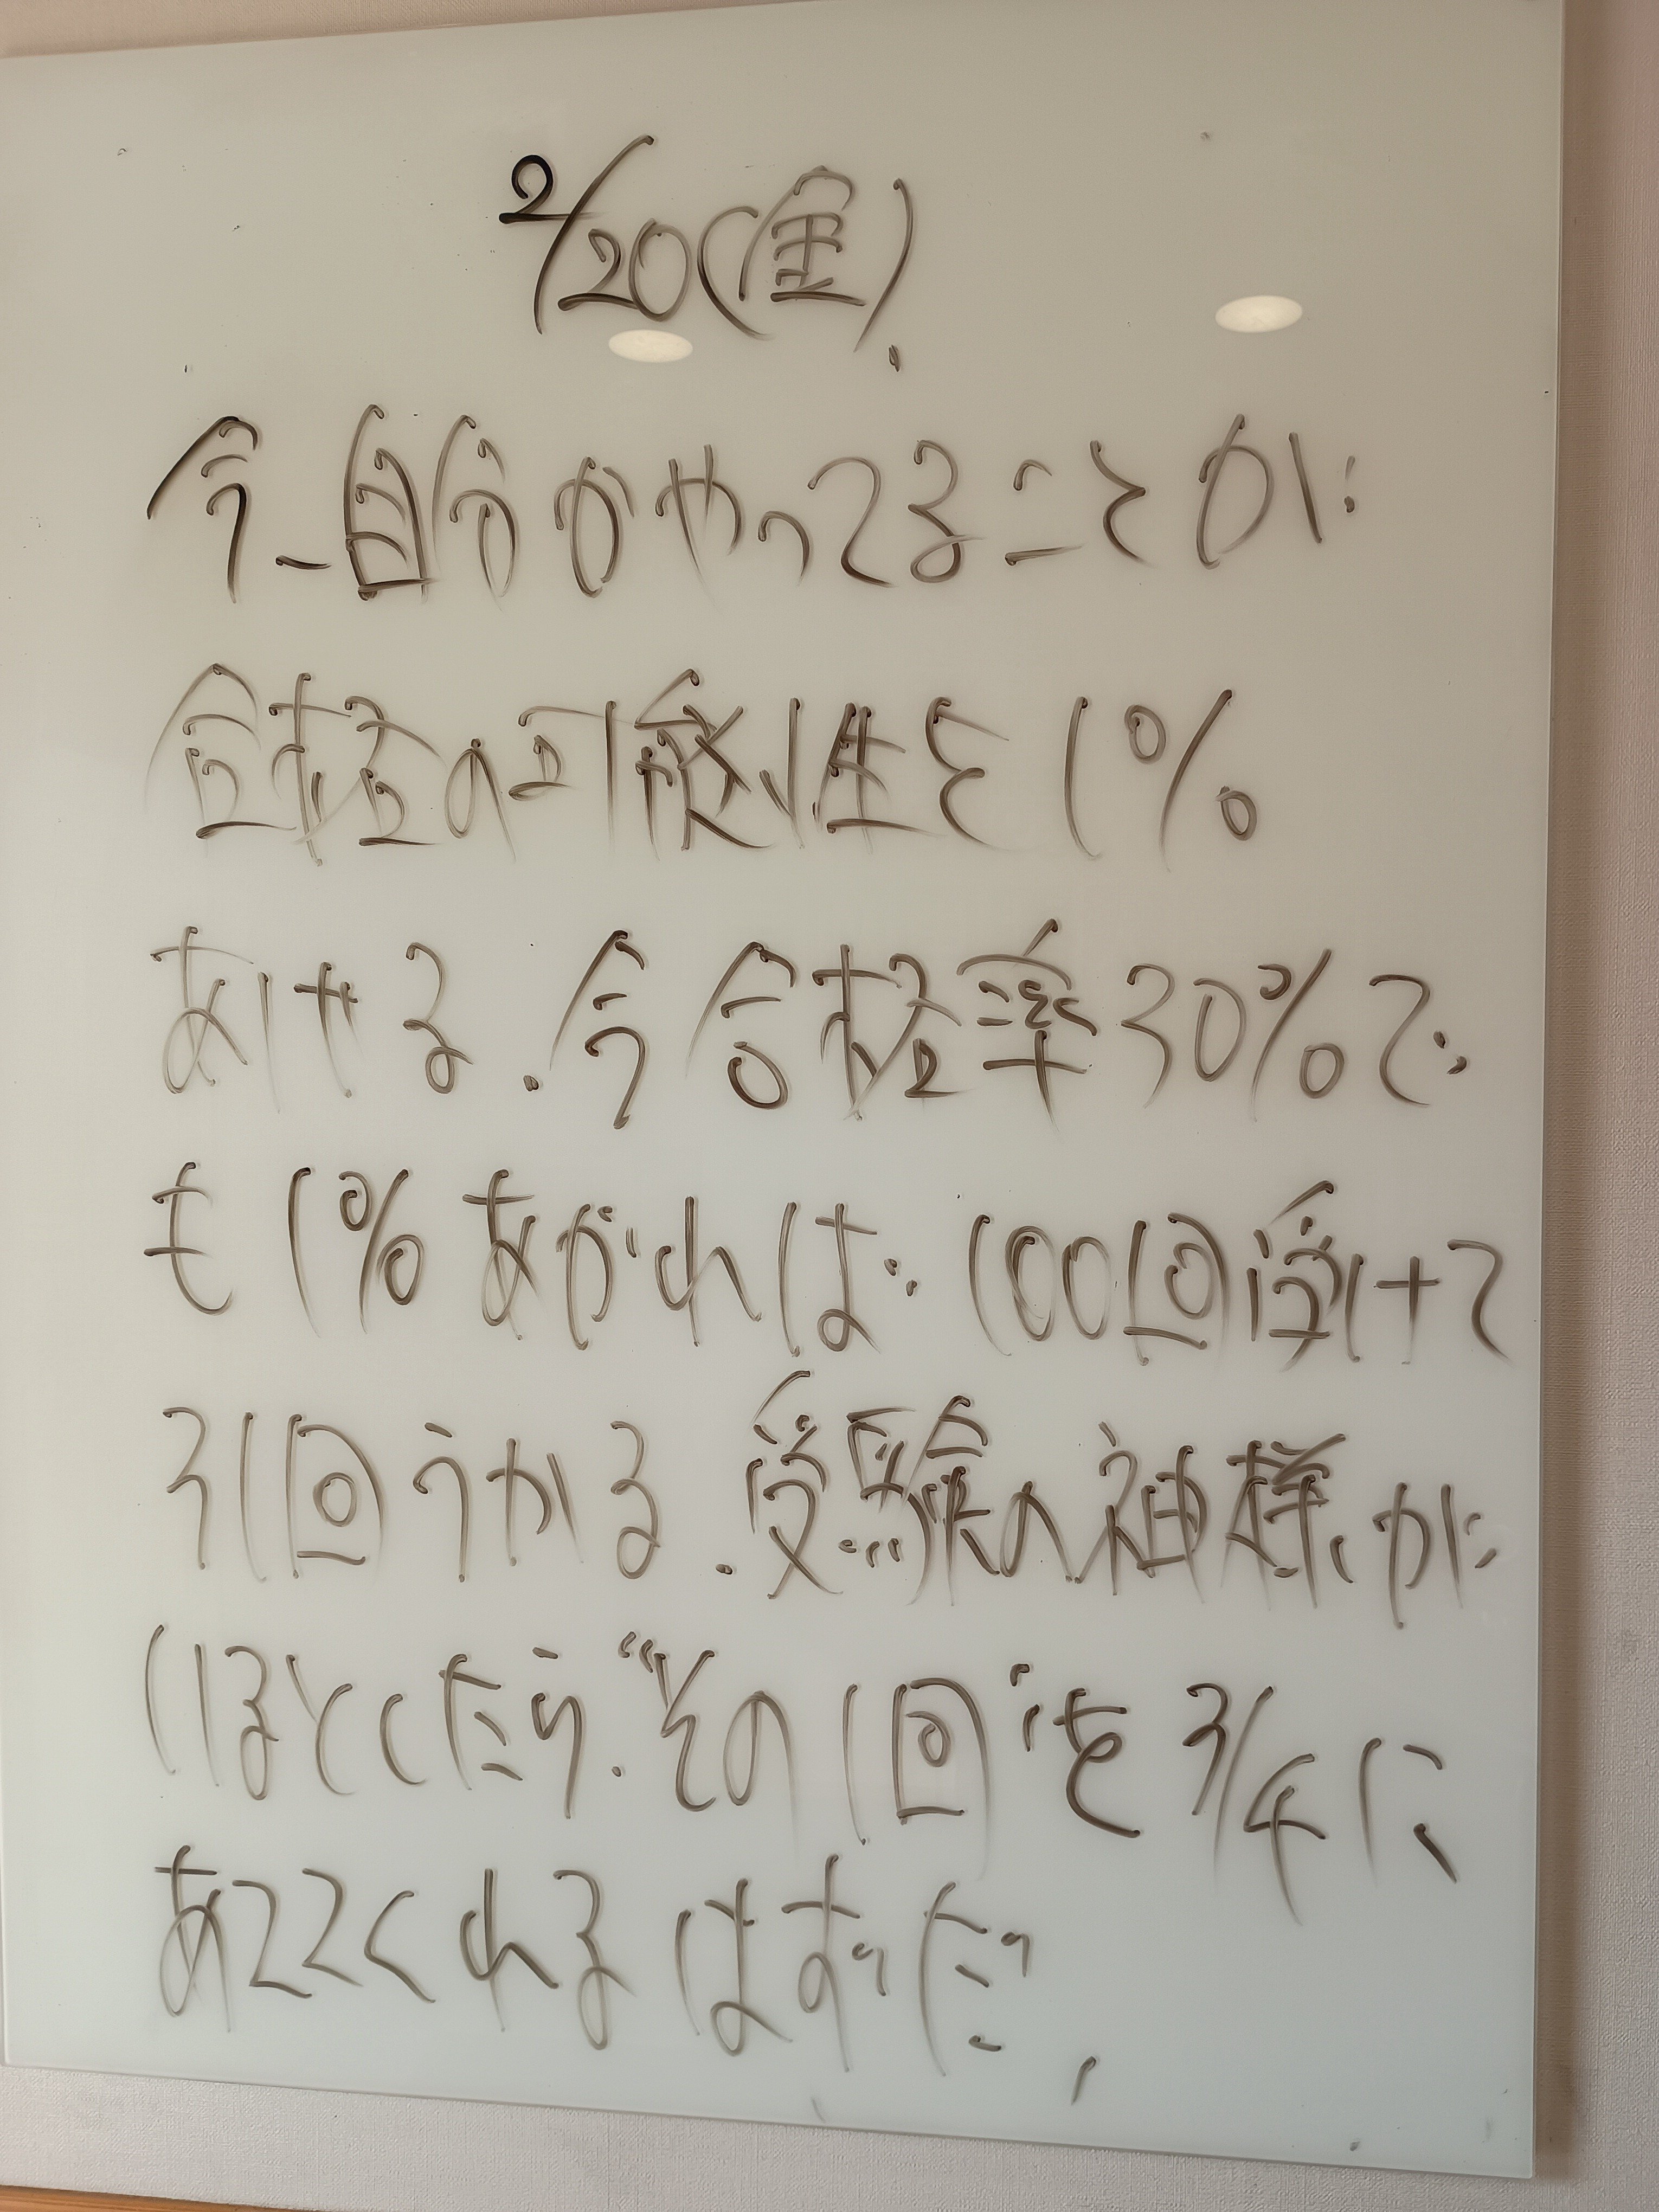 2/20(金).
今、自分がやってることが
合格の可能性を1%
あげる.今合格率30%で
も1%あがれば100回受けて
31回うかる.受験の神様が
いるとしたら.“その1回”を3/4に
あててくれるはずだ,